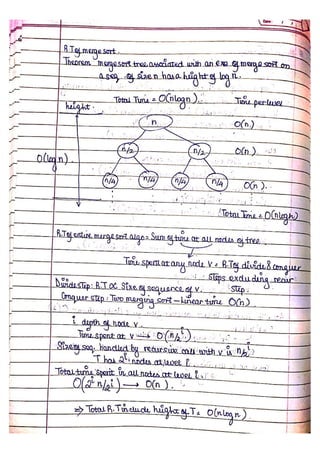 R.T of merge sort.
Theorem merge sort tree associated with an exe of merge sort on
a seq. of size n has a height of log n.
Total Time = O(nlogn).
Time per level
height.
n
O(n)
n/2
n/2
O(n)
O(log n).
n/4
n/4
n/4
n/4
O(n).
Total Time = O(nlogn)
R.T of entire merge sort algo = Sum of time at all nodes of tree
Time spent at any node v = R.T of divide & conquer
Steps excluding recur
step.
Divide step: R.T ∝ Size of sequence of v.
Conquer step: Two merging sort – linear time O(n)
i depth of node v
Time spent at v → O(n/2^i)
Size of seq. handled by recursive call with v is n/2^i
T has 2^i nodes at level i.
Total time spent in all nodes at level i.
O(2^i n/2^i) → O(n).
⇒ Total R.T include height of T = O(nlogn)